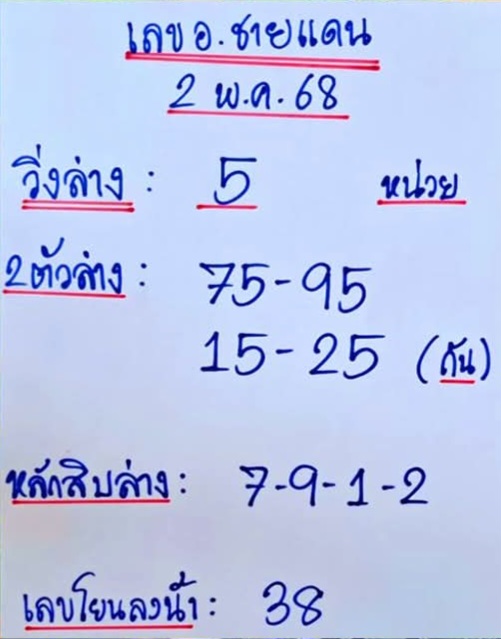 เลข อ.ชายแดน
2 พ.ค. 68
วิ่งล่าง : 5 หน่วย
2ตัวล่าง : 75-95
15-25 (กัน)
หลักสิบล่าง : 7-9-1-2
เลขโยนลงน้ำ : 38